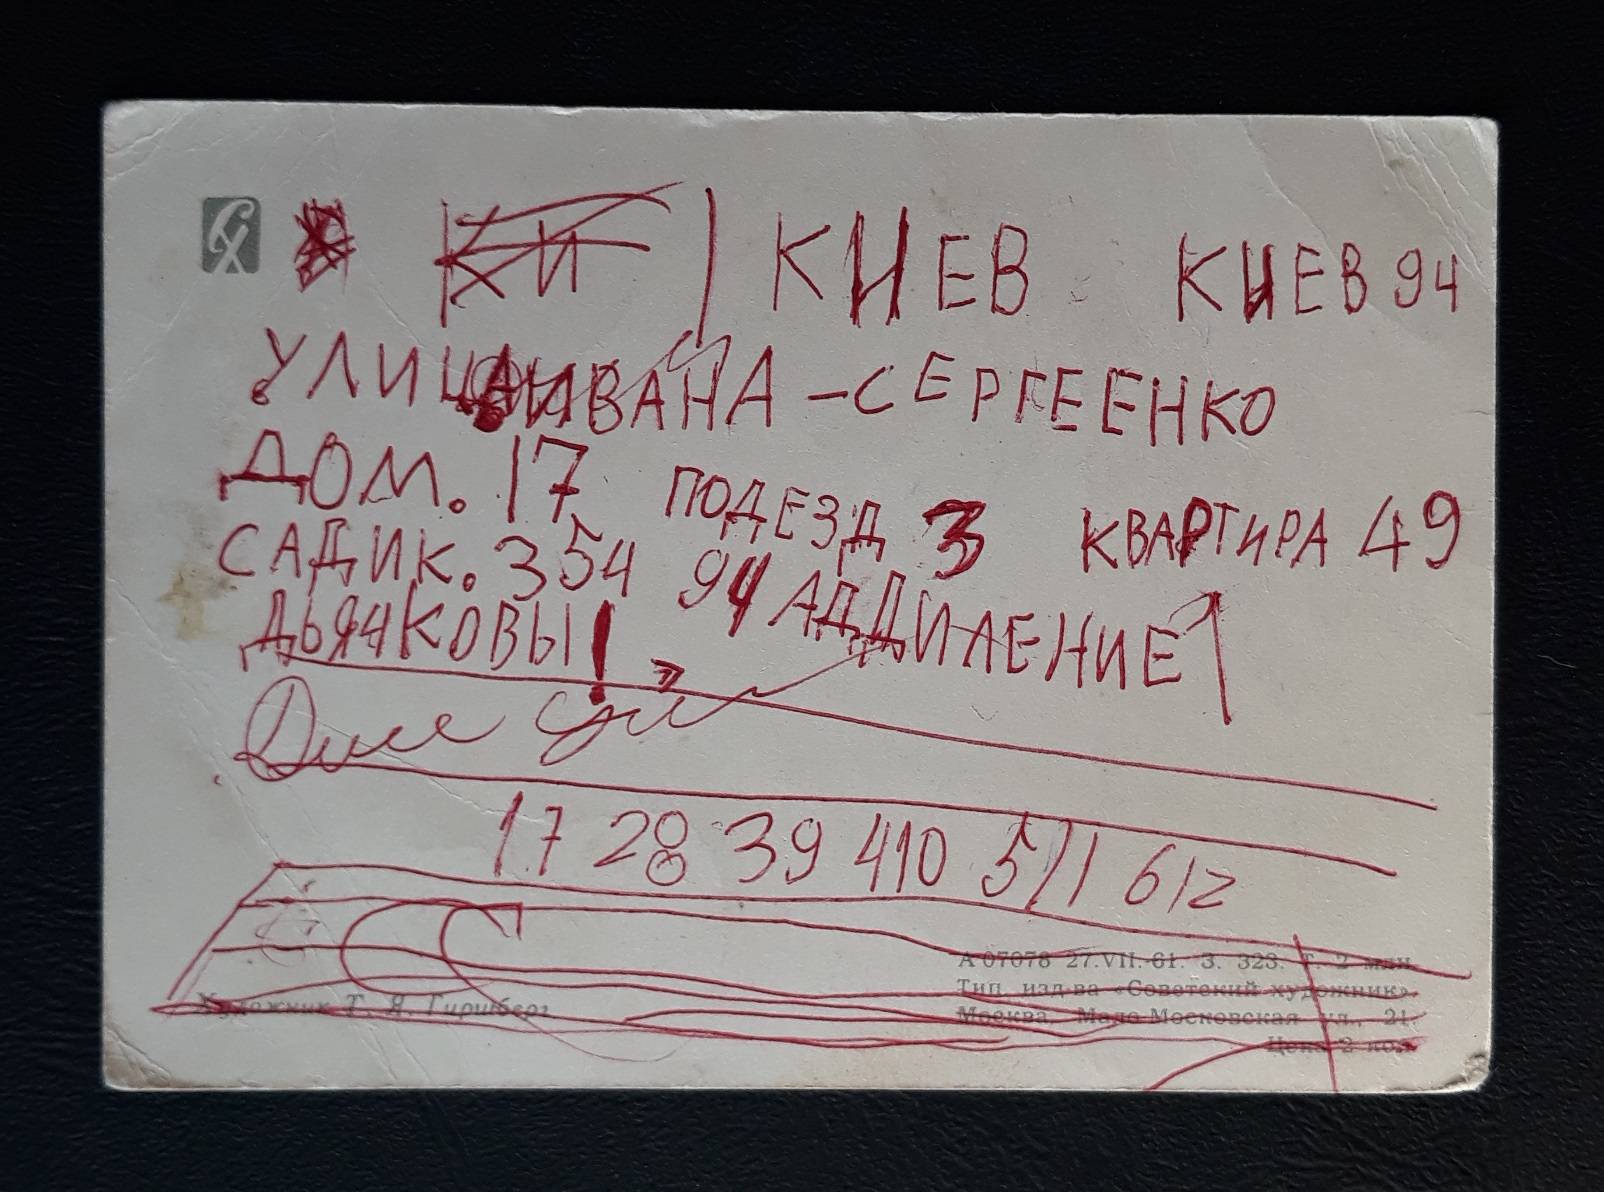 КИ КИЕВ КИЕВ 94
УЛИЦА ИВАНА - СЕРГЕЕНКО
ДОМ. 17 ПОДЕЗД 3 КВАРТИРА 49
САДИК. 354 94 АДДИЛЕНИЕ
ДЬЯЧКОВЫ!
17 28 39 410 511 612
А 07078 27.VII.61. З. 323. Т. 2 млн
Тип. изд-ва «Советский художник».
Художник Т. Я. Гиршберг
Москва, Мало-Московская ул., 21
Цена 2 коп.